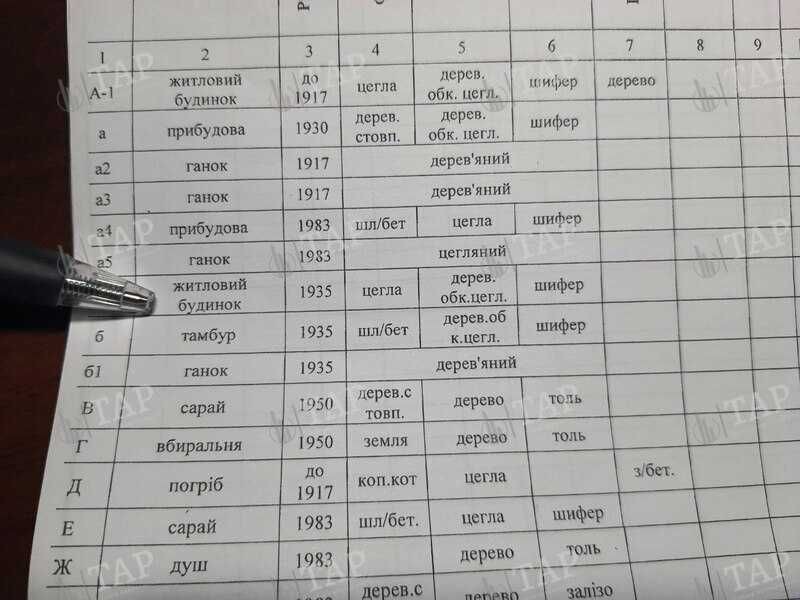 1 2 3 4 5 6 7 8 9
А-1 житловий будинок до 1917 цегла дерев. обк. цегл. шифер дерево
а прибудова 1930 дерев. стовп. дерев. обк. цегл. шифер
а2 ганок 1917 дерев'яний
а3 ганок 1917 дерев'яний
а4 прибудова 1983 шл/бет цегла шифер
а5 ганок 1983 цегляний
житловий будинок 1935 цегла дерев. обк.цегл. шифер
б тамбур 1935 шл/бет дерев.об к.цегл. шифер
б1 ганок 1935 дерев'яний
В сарай 1950 дерев.с товп. дерево толь
Г вбиральня 1950 земля дерево толь
Д погріб до 1917 коп.кот цегла з/бет.
Е сарай 1983 шл/бет. цегла шифер
Ж душ 1983 дерево толь
дерев.с дерево залізо